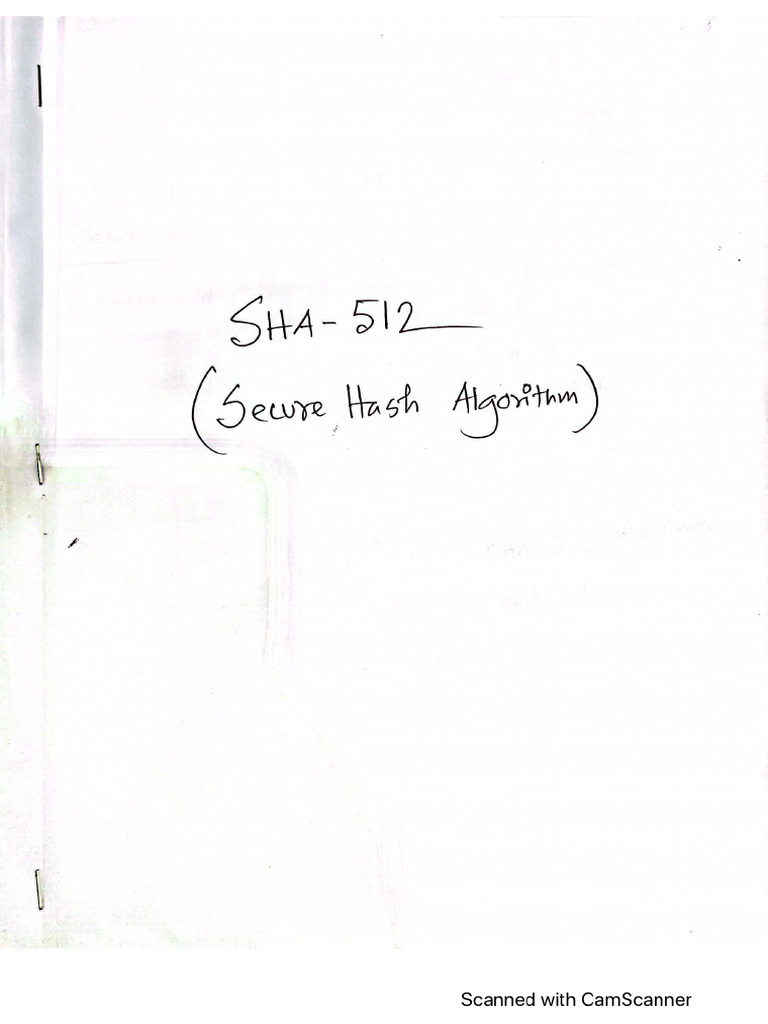 SHA-512
(Secure Hash Algorithm)
Scanned with CamScanner